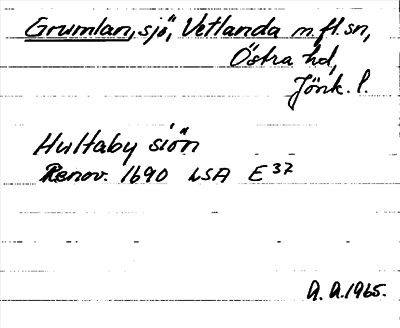 Grumlan, sjö, Vetlanda m.fl. sn,
Östra hd,
Jönk. l.
Hultaby siön
Renov. 1690 LSA E 37
A. A. 1965.